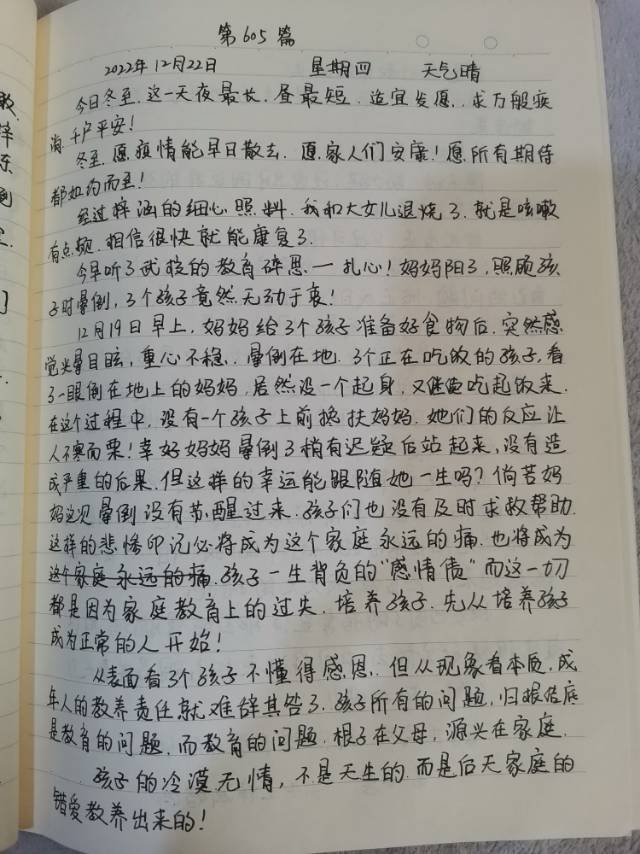 第605篇
2022年12月22日 星期四 天气晴
今日冬至,这一天夜最长,昼最短,适宜发愿,求万般疾
消,千户平安!
冬至,愿疫情能早日散去,愿家人们安康!愿所有期待
都如约而至!
经过梓涵的细心照料,我和大女儿退烧了,就是咳嗽
有点频,相信很快就能康复了.
今早听了武校的教育碎思一扎心!妈妈阳了,照顾孩
子时晕倒,3个孩子竟然无动于衷!
12月19日早上,妈妈给3个孩子准备好食物后,突然感
觉头晕目眩,重心不稳,晕倒在地.3个正在吃饭的孩子,看
了一眼倒在地上的妈妈,居然没一个起身,又继续吃起饭来.
在这个过程中,没有一个孩子上前搀扶妈妈.她们的反应让
人不寒而栗!幸好妈妈晕倒了稍有迟疑后站起来,没有造
成严重的后果.但这样的幸运能跟随她一生吗?倘若妈
妈这晕倒没有苏醒过来,孩子们也没有及时求救帮助.
这样的悲惨印记必将成为这个家庭永远的痛.也将成为
这个家庭永远的痛.孩子一生背负的"感情债"而这一切
都是因为家庭教育上的过失,培养孩子.先从培养孩子
成为正常的人开始!
从表面看3个孩子不懂得感恩,但从现象看本质,成
年人的教养责任就难辞其咎了.孩子所有的问题,归根结底
是教育的问题,而教育的问题.根子在父母,源兴在家庭.
孩子的冷漠无情,不是天生的,而是后天家庭的
错爱教养出来的!